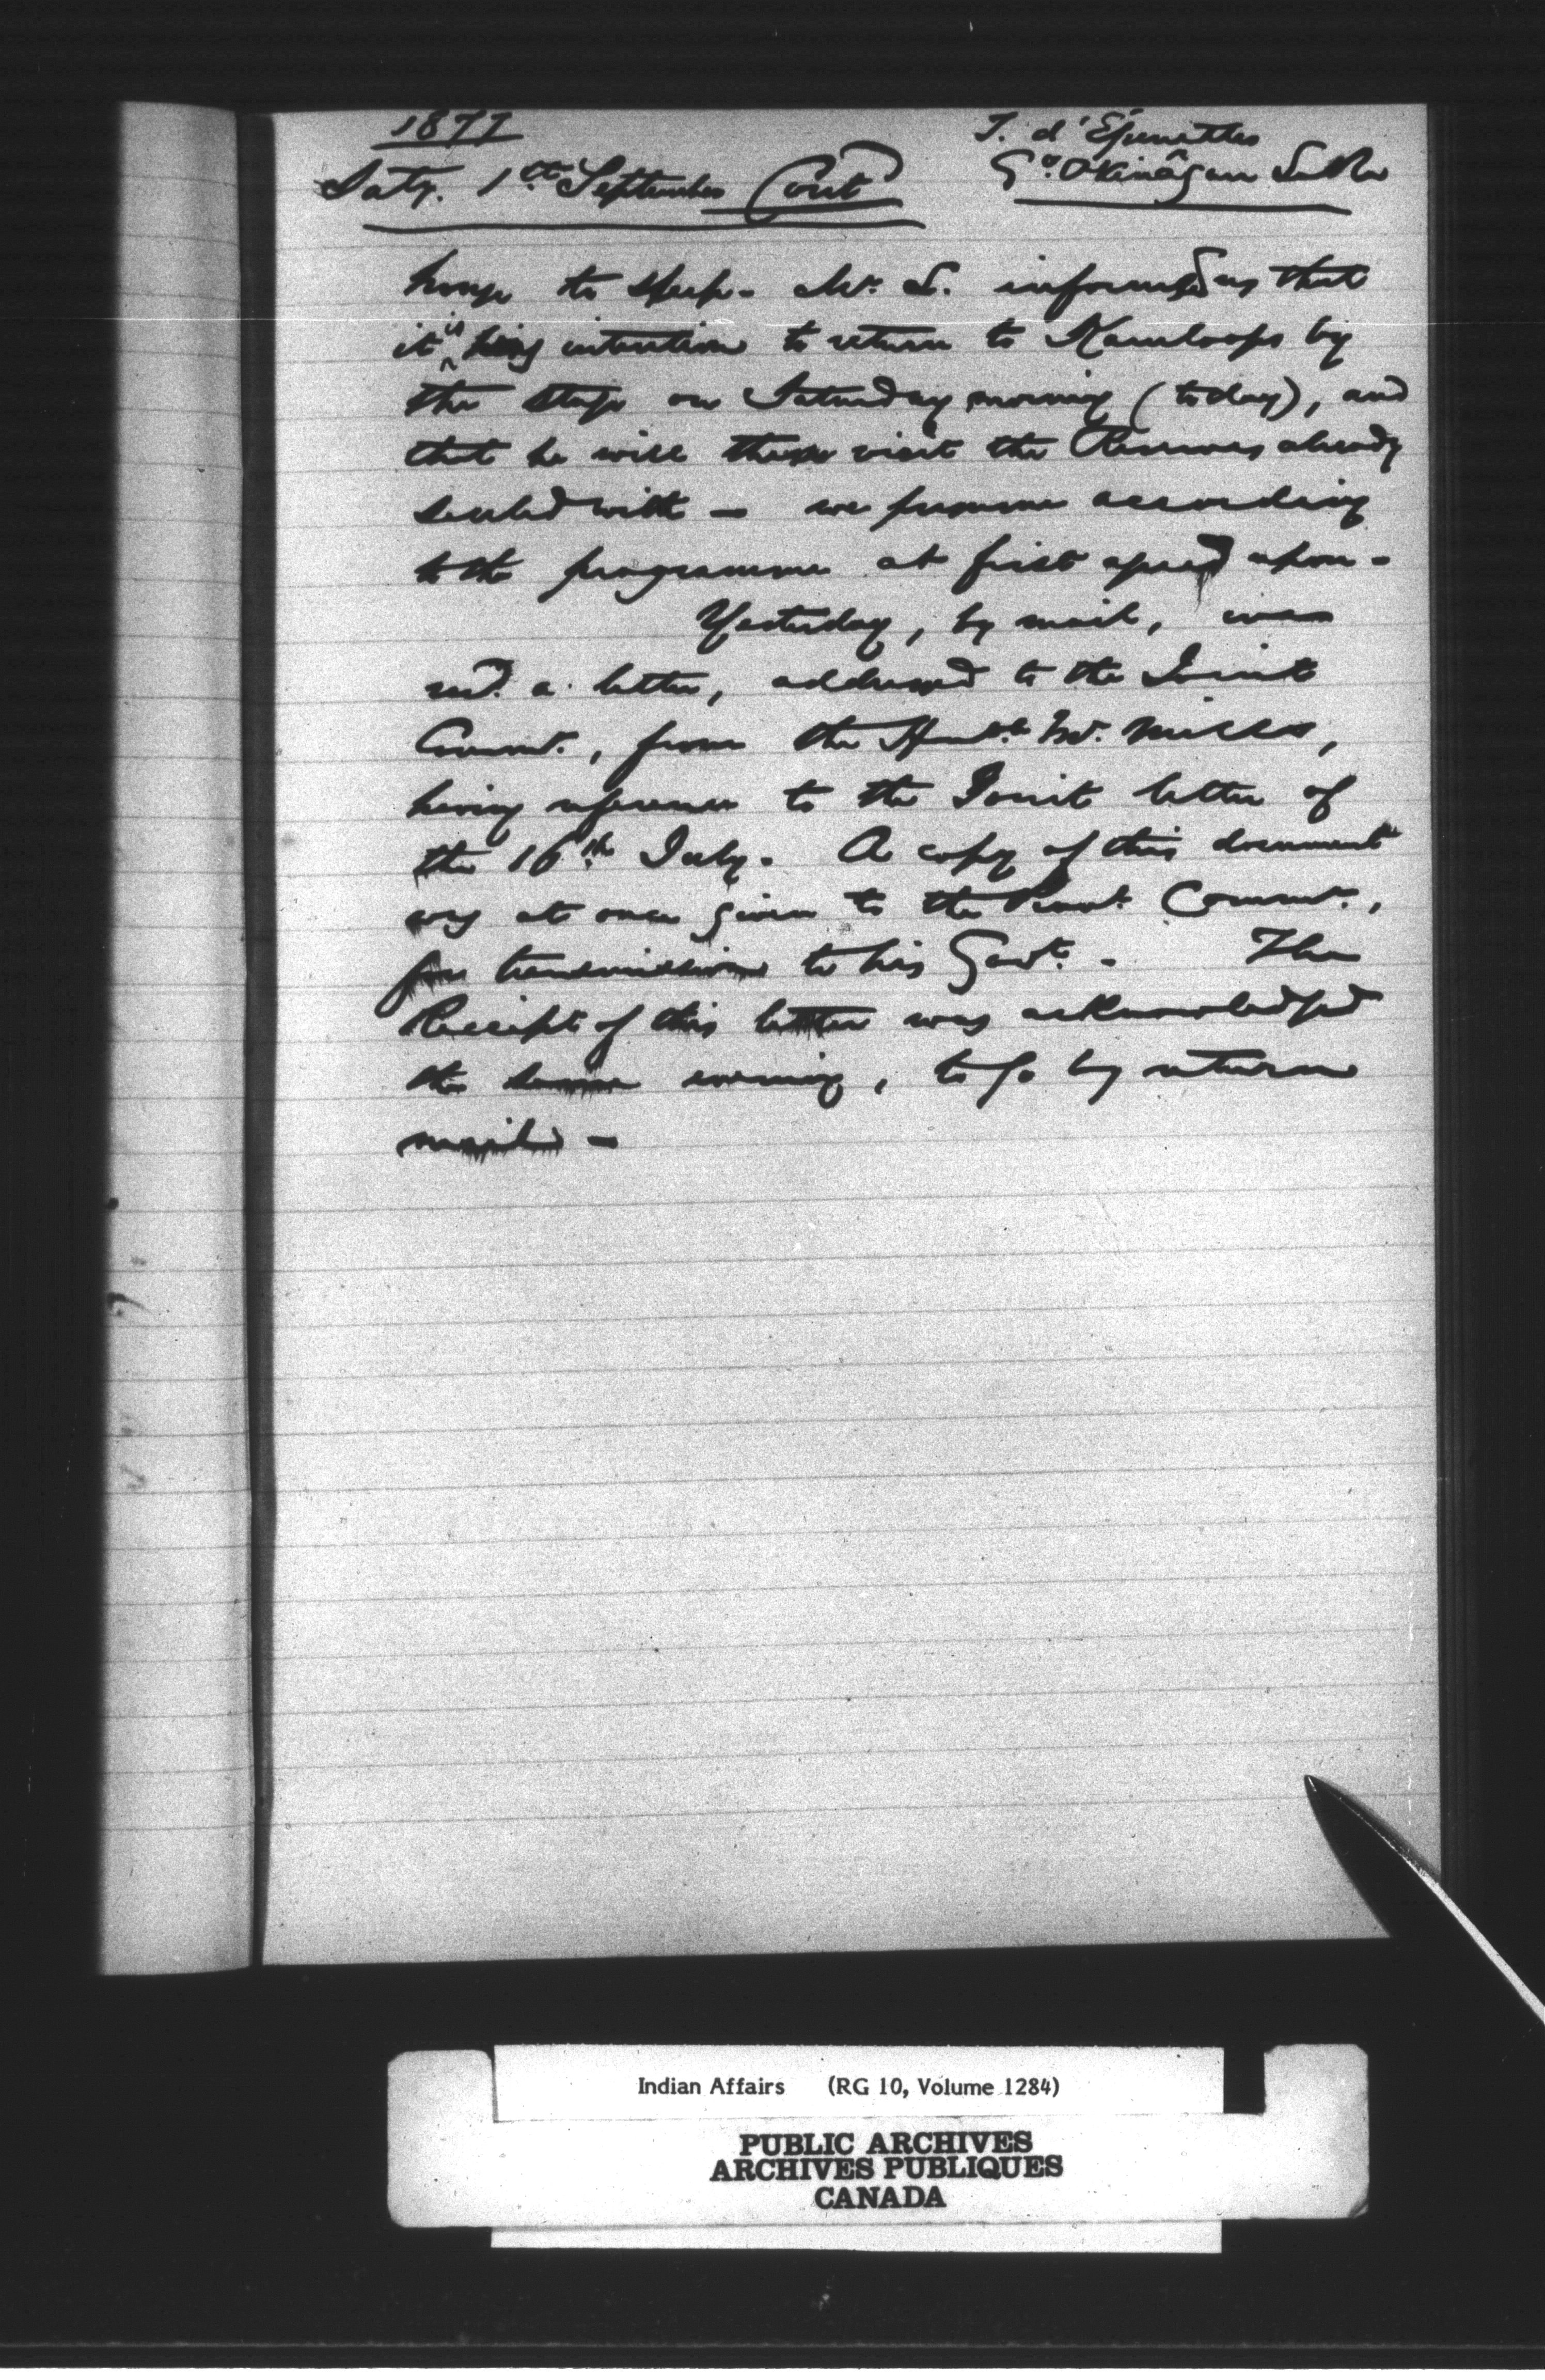 1877
T. d'Épinettes
Saty. 1st September Cont'd
Gd. Okinâgan Lake
house to sleep - Mr. S. informed us that
it is his intention to return to Kamloops by
the stage on Saturday morning (today), and
that he will then visit the Reserves already
dealt with - we presume according
to the programme at first agreed upon -
Yesterday, by mail, was
recd. a letter, addressed to the Joint
Commn., from the Honble. Mr. Mills,
having reference to the Joint letter of
the 16th July. A copy of this document
was at once given to the Provl. Commr.,
for transmission to his Govt. - The
Receipt of this letter was acknowledged
the same evening, to go by return
mail -
Indian Affairs (RG 10, Volume 1284)
PUBLIC ARCHIVES
ARCHIVES PUBLIQUES
CANADA